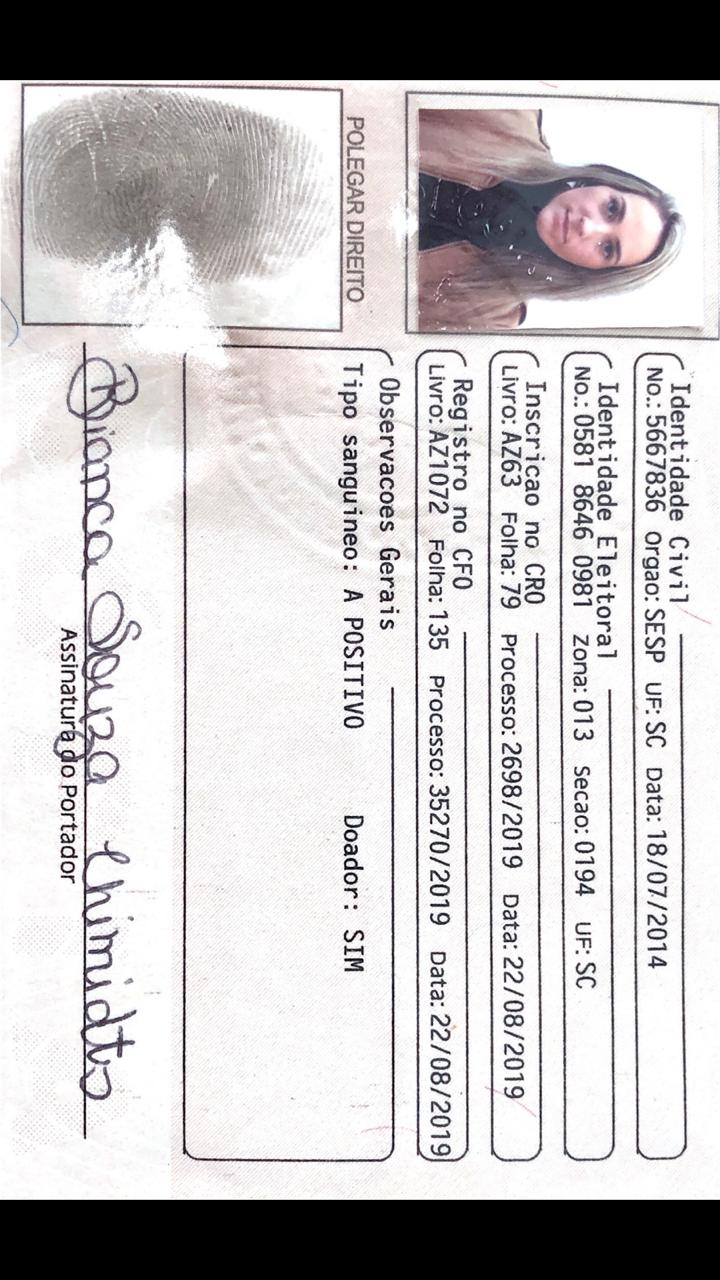 POLEGAR DIREITO
Identidade Civil
No.: 5667836 Orgao: SESP UF: SC Data: 18/07/2014
Identidade Eleitoral
No.: 0581 8646 0981 Zona: 013 Secao: 0194 UF: SC
Inscricao no CRO
Livro: AZ63 Folha: 79 Processo: 2698/2019 Data: 22/08/2019
Registro no CFO
Livro: AZ1072 Folha: 135 Processo: 35270/2019 Data: 22/08/2019
Observacoes Gerais
Tipo sanguineo: A POSITIVO Doador: SIM
Bianca Souza
Assinatura do Portador